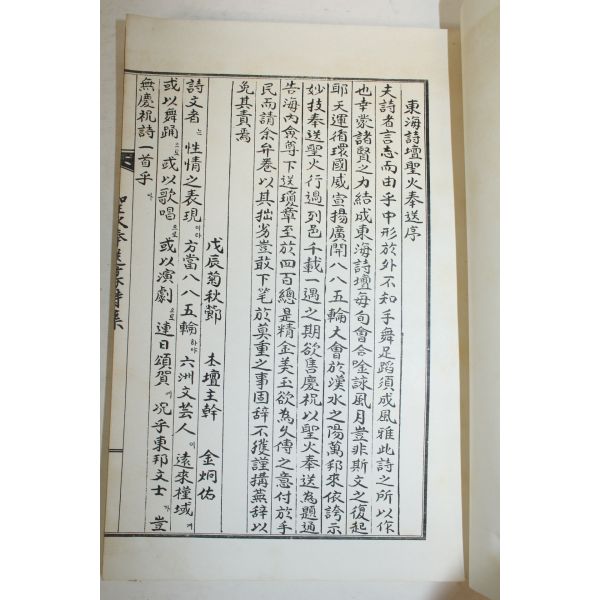 東海詩壇聖火奉送序
夫詩者言志而由乎中形於外不知手舞足蹈須成風雅此詩之所以作
也幸蒙諸賢之力結成東海詩壇每旬會合唫詠風月豈非斯文之復起
耶天運循環國威宣揚廣開八八五輪大會於漢水之陽萬邦來依誇示
妙技奉送聖火行過列邑千載一遇之期欲售慶祝以聖火奉送為題通
告海內僉尊下送瓊章至於四百總是精金美玉欲為久傳之意付於手
民而請余弁卷以其拙劣豈敢下筆於莫重之事固辞不獲謹搆蕪辞以
免其責焉
戊辰菊秋節 本壇主幹 金炯佑
詩文者는 性情之表現이라 方當八八五輪하야 六洲文芸人이 遠來槿域에
或以舞踊으로 或以歌唱으로 或以演劇으로 連日頌賀에 况乎東邦文士가 豈
無慶祝詩一首乎아